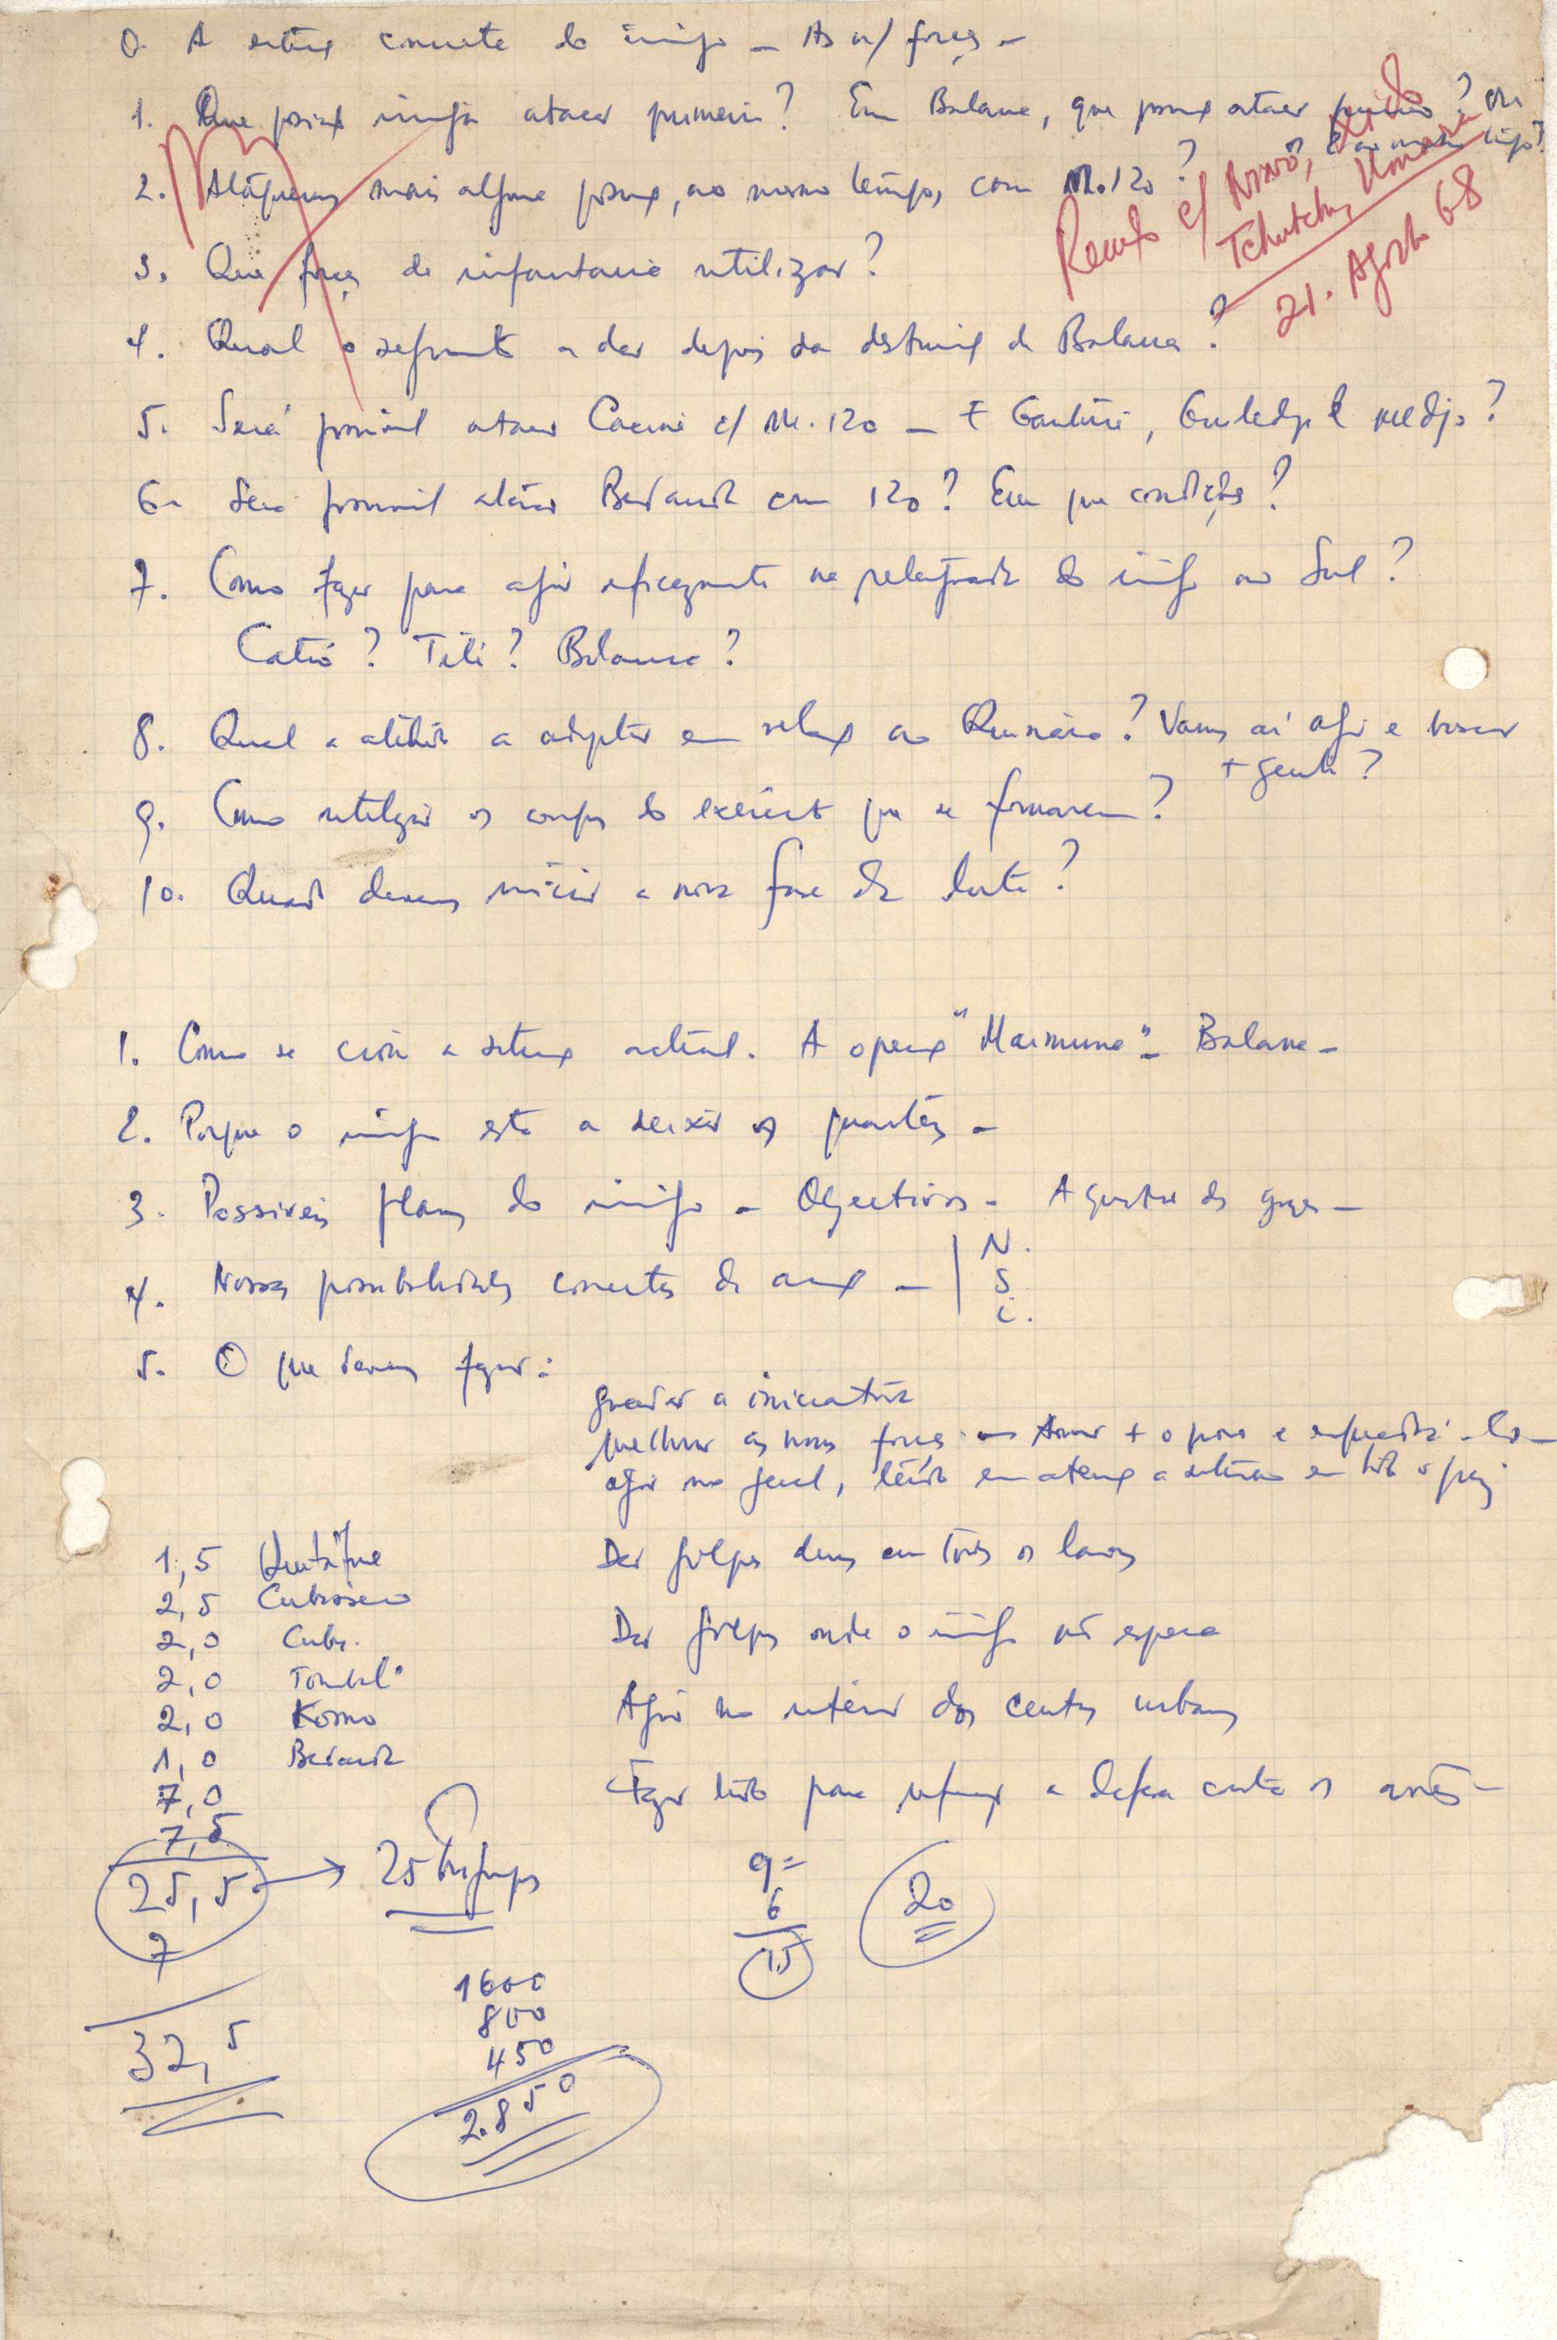 0. A situação concreta do inimigo — As n/ forças —
1. Que posição inimiga atacar primeiro? Em Balana, que posição atacar primeiro? Ou
é ao mesmo tempo?
2. Ataquemos mais alguma posição, ao mesmo tempo, com M.120?
Reunião c/ Nino,
Tchutchu, Umaru
21. Agosto 68
3. Que forças de infantaria utilizar?
4. Qual o seguimento a dar depois da destruição de Balana?
5. Será possível atacar Cacine c/ M. 120 — E Gantúrè, Guiledje e Medjo?
6. Será possível atacar Bedanda com 120? Em que condições?
7. Como fazer para agir eficazmente na retaguarda do inimigo no Sul?
Catió? Tite? Bolama?
8. Qual a atitude a adoptar em relação ao Quinara? Vamos aí agir e buscar
+ gente?
9. Como utilizar os corpos do exército que se formarem?
10. Quando devemos iniciar a nova fase da luta?
1. Como se criou a situação actual. A operação "Maimuna" — Balana —
2. Porque o inimigo está a deixar os quartéis —
3. Possíveis planos do inimigo — Objectivos — A questão de
4. Nossas possibilidades concretas de acção —
N.
S.
L.
5. O que devemos fazer:
guardar a iniciativa
melhorar as nossas forças — Armar + o povo e enquadrá-lo —
agir no geral, tendo em atenção a situação em todo o país
Dar golpes duros em todos os lados
Dar golpes onde o inimigo não espera
Agir no interior dos centros urbanos
Fazer tudo para reforçar a defesa contra os aviões —
1,5 Quitáfine
2,5 Cubisseco
2,0 Cubu.
2,0 Tombali
2,0 Komo
1,0 Bedanda
7,0
7,5
25,5 → 25 bigrupos
7
32,5
1600
800
450
2.850
9 =
6
15
20